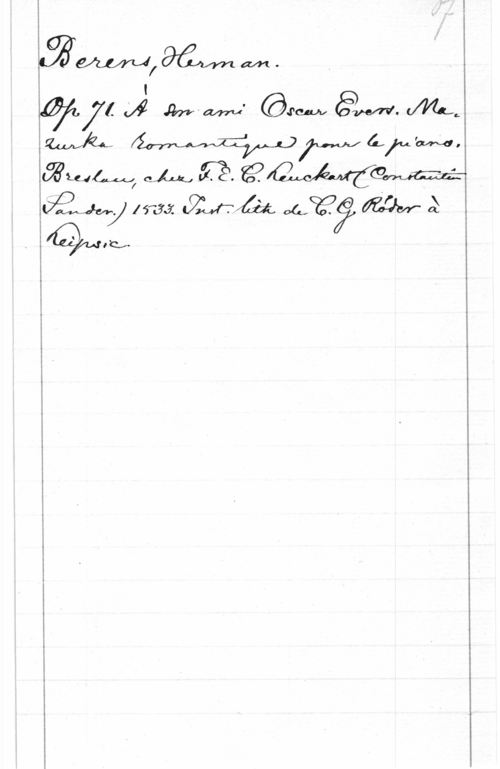 Berens, Herman.
Op. 71. À son ami Oscar Evers. Ma-
zurka romantique pour le piano.
Breslau, chez F. E. C. Leuckart (Constantin
Sander.) 1533. Inst. lith. de C. G. Röder à
Leipsic.